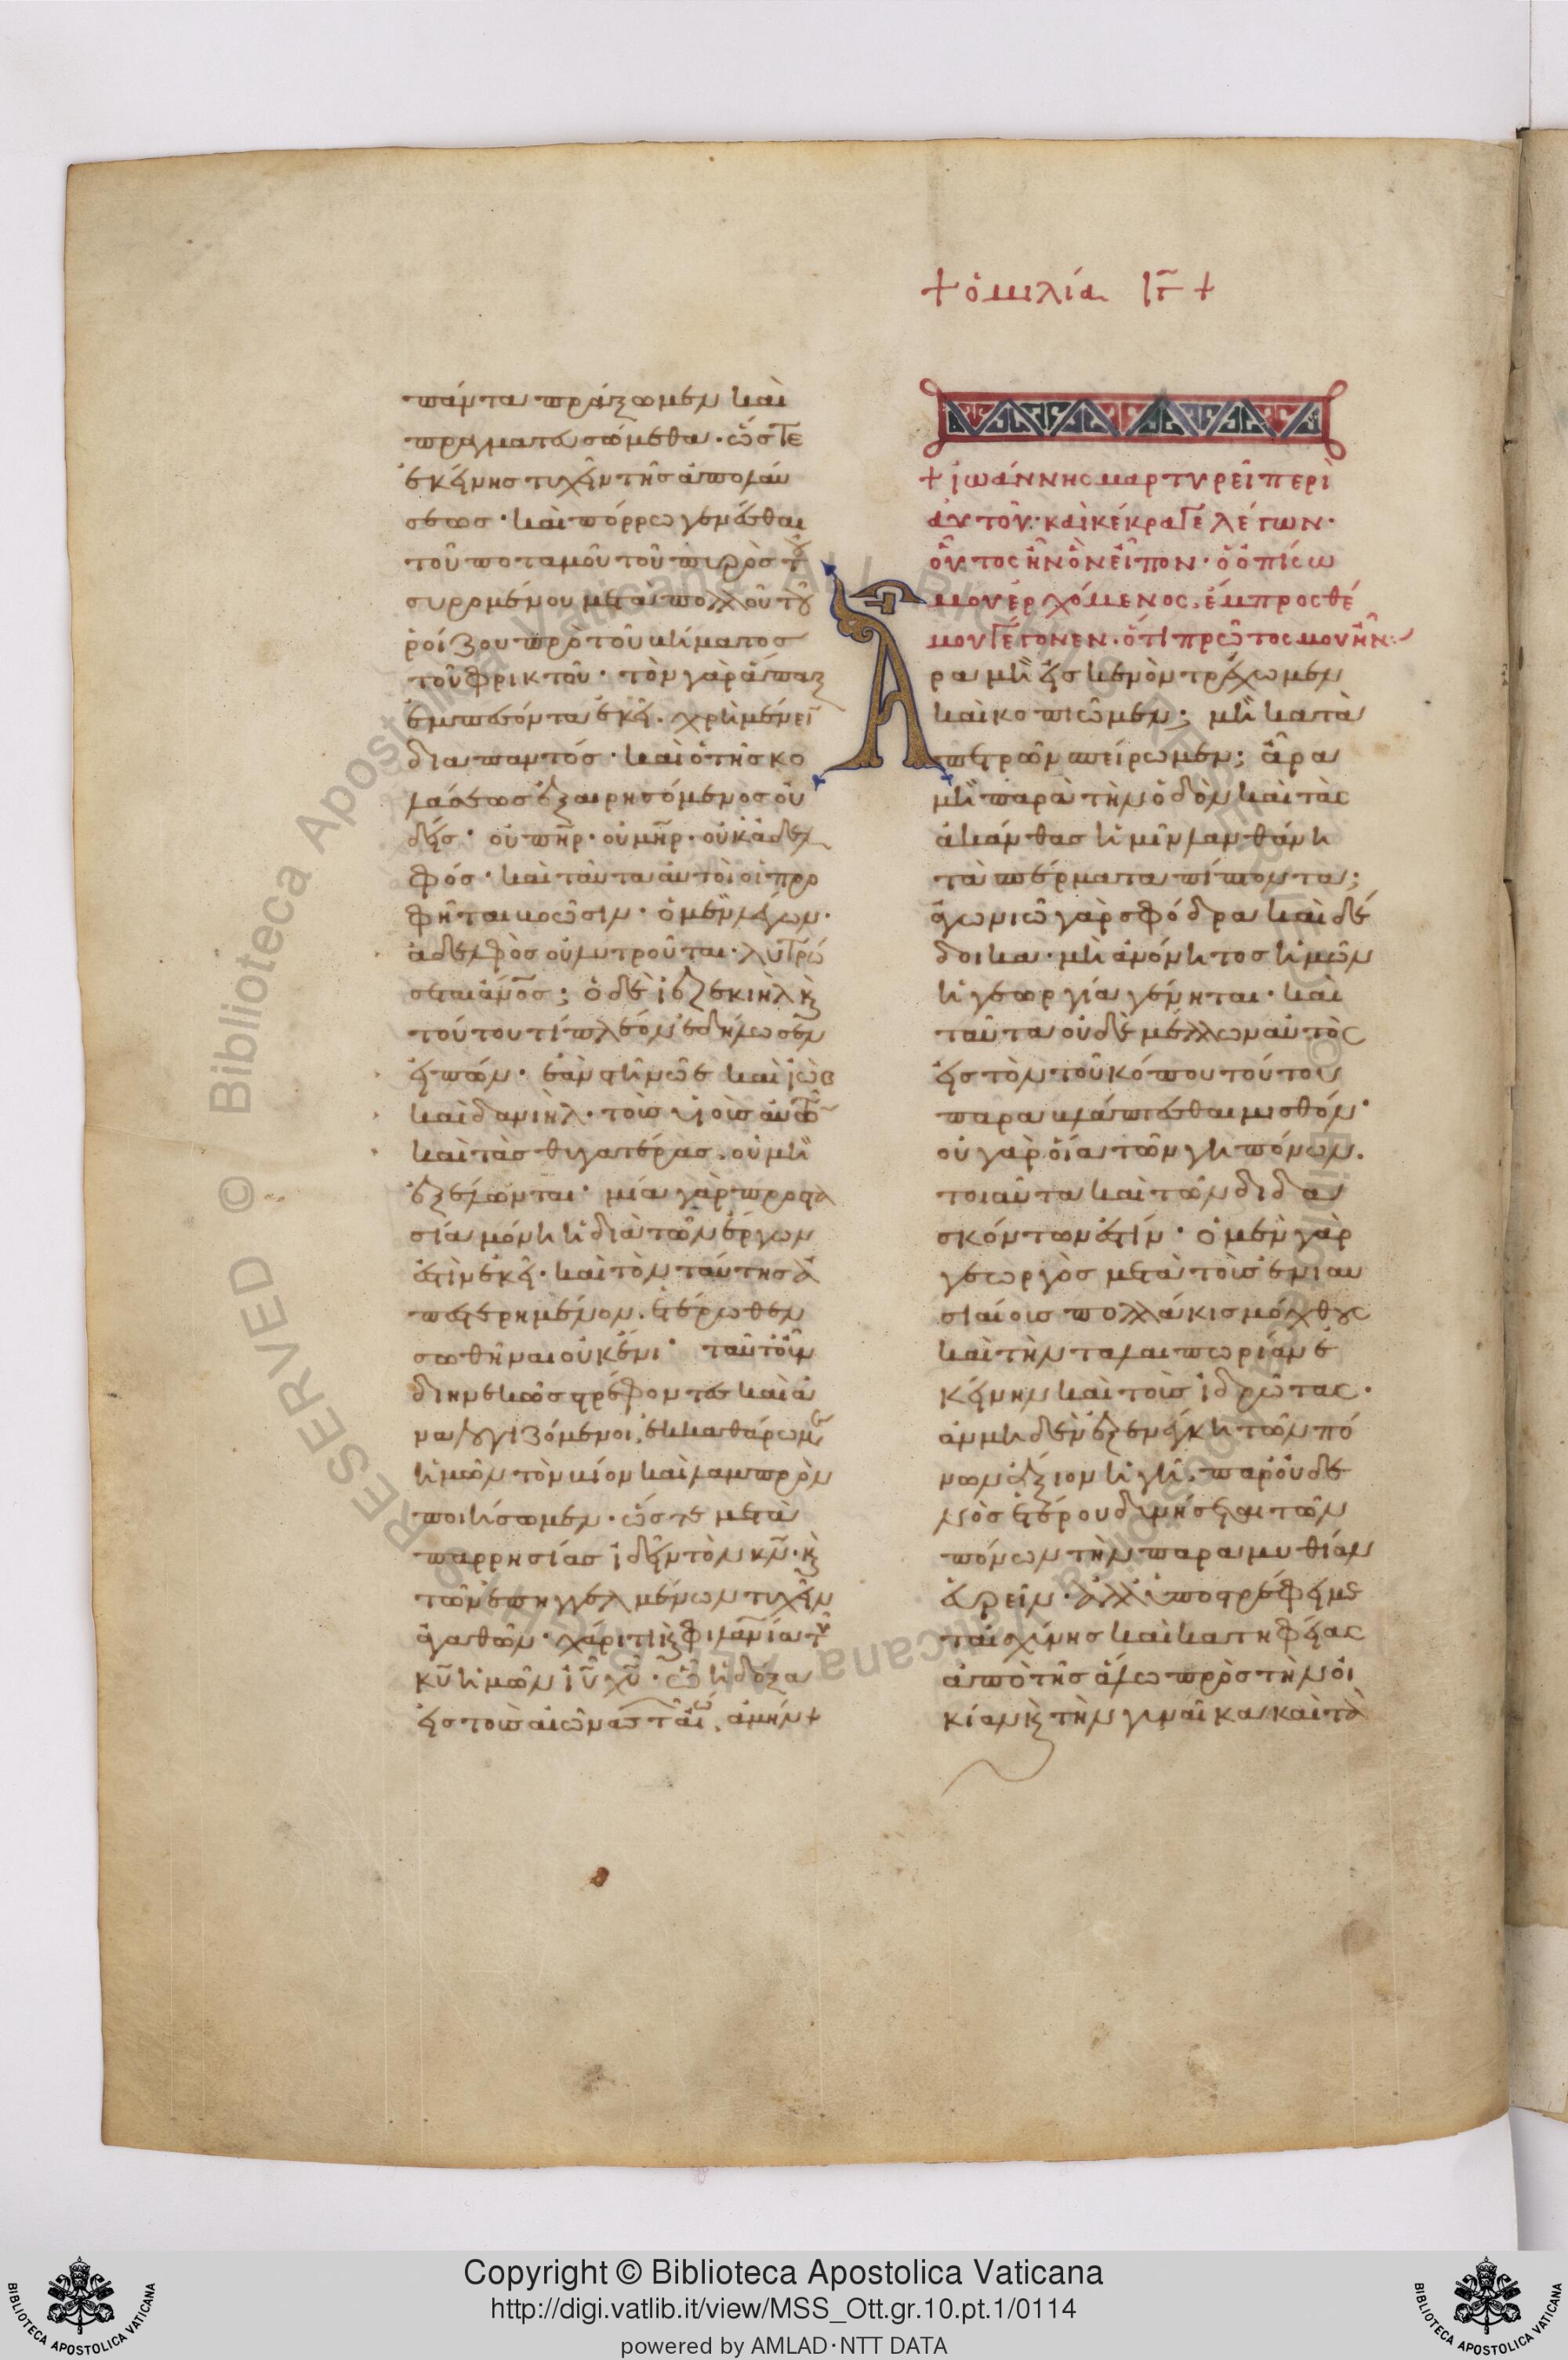 + ὁμιλία ιγ +
πάντα πράξωμεν καὶ
πραγματευσώμεθα· ὥστε
ἐκείνης τυχεῖν τῆς ἀπολαύ
σεως· καὶ πόρρω γενέσθαι
τοῦ ποταμοῦ τοῦ πυρὸς τοῦ
συρομένου μετὰ πολλοῦ τοῦ
ῥοίζου πρὸ τοῦ βήματος
τοῦ φρικτοῦ· τὸν γὰρ ἅπαξ
ἐμπεσόντα ἐκεῖ. χρὴ μένειν
διαπαντός· καὶ ὁ τῆς κο
λάσεως ἐξαιρησόμενος οὐ
δείς· οὐ πηρ· οὐ μηρ· οὐκ ἀδελ
φός· καὶ ταῦτα αὐτοὶ οἱ προ
φῆται βοῶσιν· ὁ μὲν λέγων·
ἀδελφὸς οὐ λυτροῦται· λυτρώ
σεται ἄνος; ὁ δὲ ἰεζεκιὴλ κ
τούτου τί πλέον ἐδήλωσεν
εἰπών· ἐὰν στῆ νῶε καὶ ἰὼβ
καὶ δανιὴλ· τοὺς υἱοὺς αὐτῶν
καὶ τὰς θυγατέρας. οὐ μὴ
ἐξελῶνται· μία γὰρ προστα
σία μόνη ἡ διὰ τῶν ἔργων
ἐστὶν ἐκεῖ· καὶ τὸν ταύτης ἀ
πεστερημένον. ἑτέρωθεν
σωθῆναι οὐκ ἔνι· ταῦτ' οὖν
διηνεκῶς στρέφοντες καὶ ἀ
ναλογιζόμενοι, ἐκκαθάρωμεν
ἡμῶν τὸν βίον καὶ λαμπρὸν
ποιήσωμεν· ὥστε μετὰ
παρρησίας ἰδεῖν τὸν κν· κ
τῶν ἐπηγγελμένων τυχεῖν
ἀγαθῶν· χάριτι κ φιλανία τοῦ
κυ ἡμῶν ιυ χυ· ὧ ἡ δόξα
εἰς τοὺς αἰῶνας τ αἰώ. ἀμήν+
+ ἰωάννης μαρτυρεῖ περὶ
αὐτοῦ· καὶ κέκραγε λέγων·
οὗτος ἦν ὃν εἶπον· ὁ ὀπίσω
μου ἐρχόμενος. ἔμπροσθέ
μου γέγονεν· ὅτι πρῶτος μου ἦν·
Α
ρα μὴ εἰς κενὸν τρέχωμεν
καὶ κοπιῶμεν; μὴ κατὰ
πετρῶν σπείρωμεν; ἆρα
μὴ παρὰ τὴν ὁδὸν καὶ τὰς
ἀκάνθας ἡμῖν λανθάνη
τὰ σπέρματα πίπτοντα;
ἀγωνιῶ γὰρ σφόδρα καὶ δέ
δοικα· μὴ ἀνόνητος ἡμῶν
ἡ γεωργία γένηται· καὶ
ταῦτα οὐδὲ μέλλων αὐτὸς
εἰς τὸν τοῦ κόπου τούτου
παραβλάπτεσθαι μισθόν·
οὐ γὰρ οἷα τῶν γηπόνων.
τοιαῦτα καὶ τῶν διδα
σκόντων ἐστίν· ὁ μὲν γὰρ
γεωργὸς μετὰ τοὺς ἐνιαυ
σιαίους πολλάκις μόχθους
καὶ τὴν ταλαιπωρίαν ἐ
κείνην καὶ τοὺς ἱδρῶτας·
ἂν μηδὲν ἐξενέγκη τῶν πό
νων ἄξιον ἡ γῆ. παρ' οὐδε
νὸς ἑτέρου δυνήσεται τῶν
πόνων τὴν παραμυθίαν
εὑρεῖν· ἀλλ' ὑποστρέφει με
τ' αἰσχύνης καὶ κατηφείας
ἀπὸ τῆς ἅλω πρὸς τὴν οἰ
κίαν κ τὴν γυναῖκα καὶ τὰ
Copyright © Biblioteca Apostolica Vaticana
http://digi.vatlib.it/view/MSS_Ott.gr.10.pt.1/0114
powered by AMLAD·NTT DATA
BIBLIOTECA APOSTOLICA VATICANA
BIBLIOTECA APOSTOLICA VATICANA